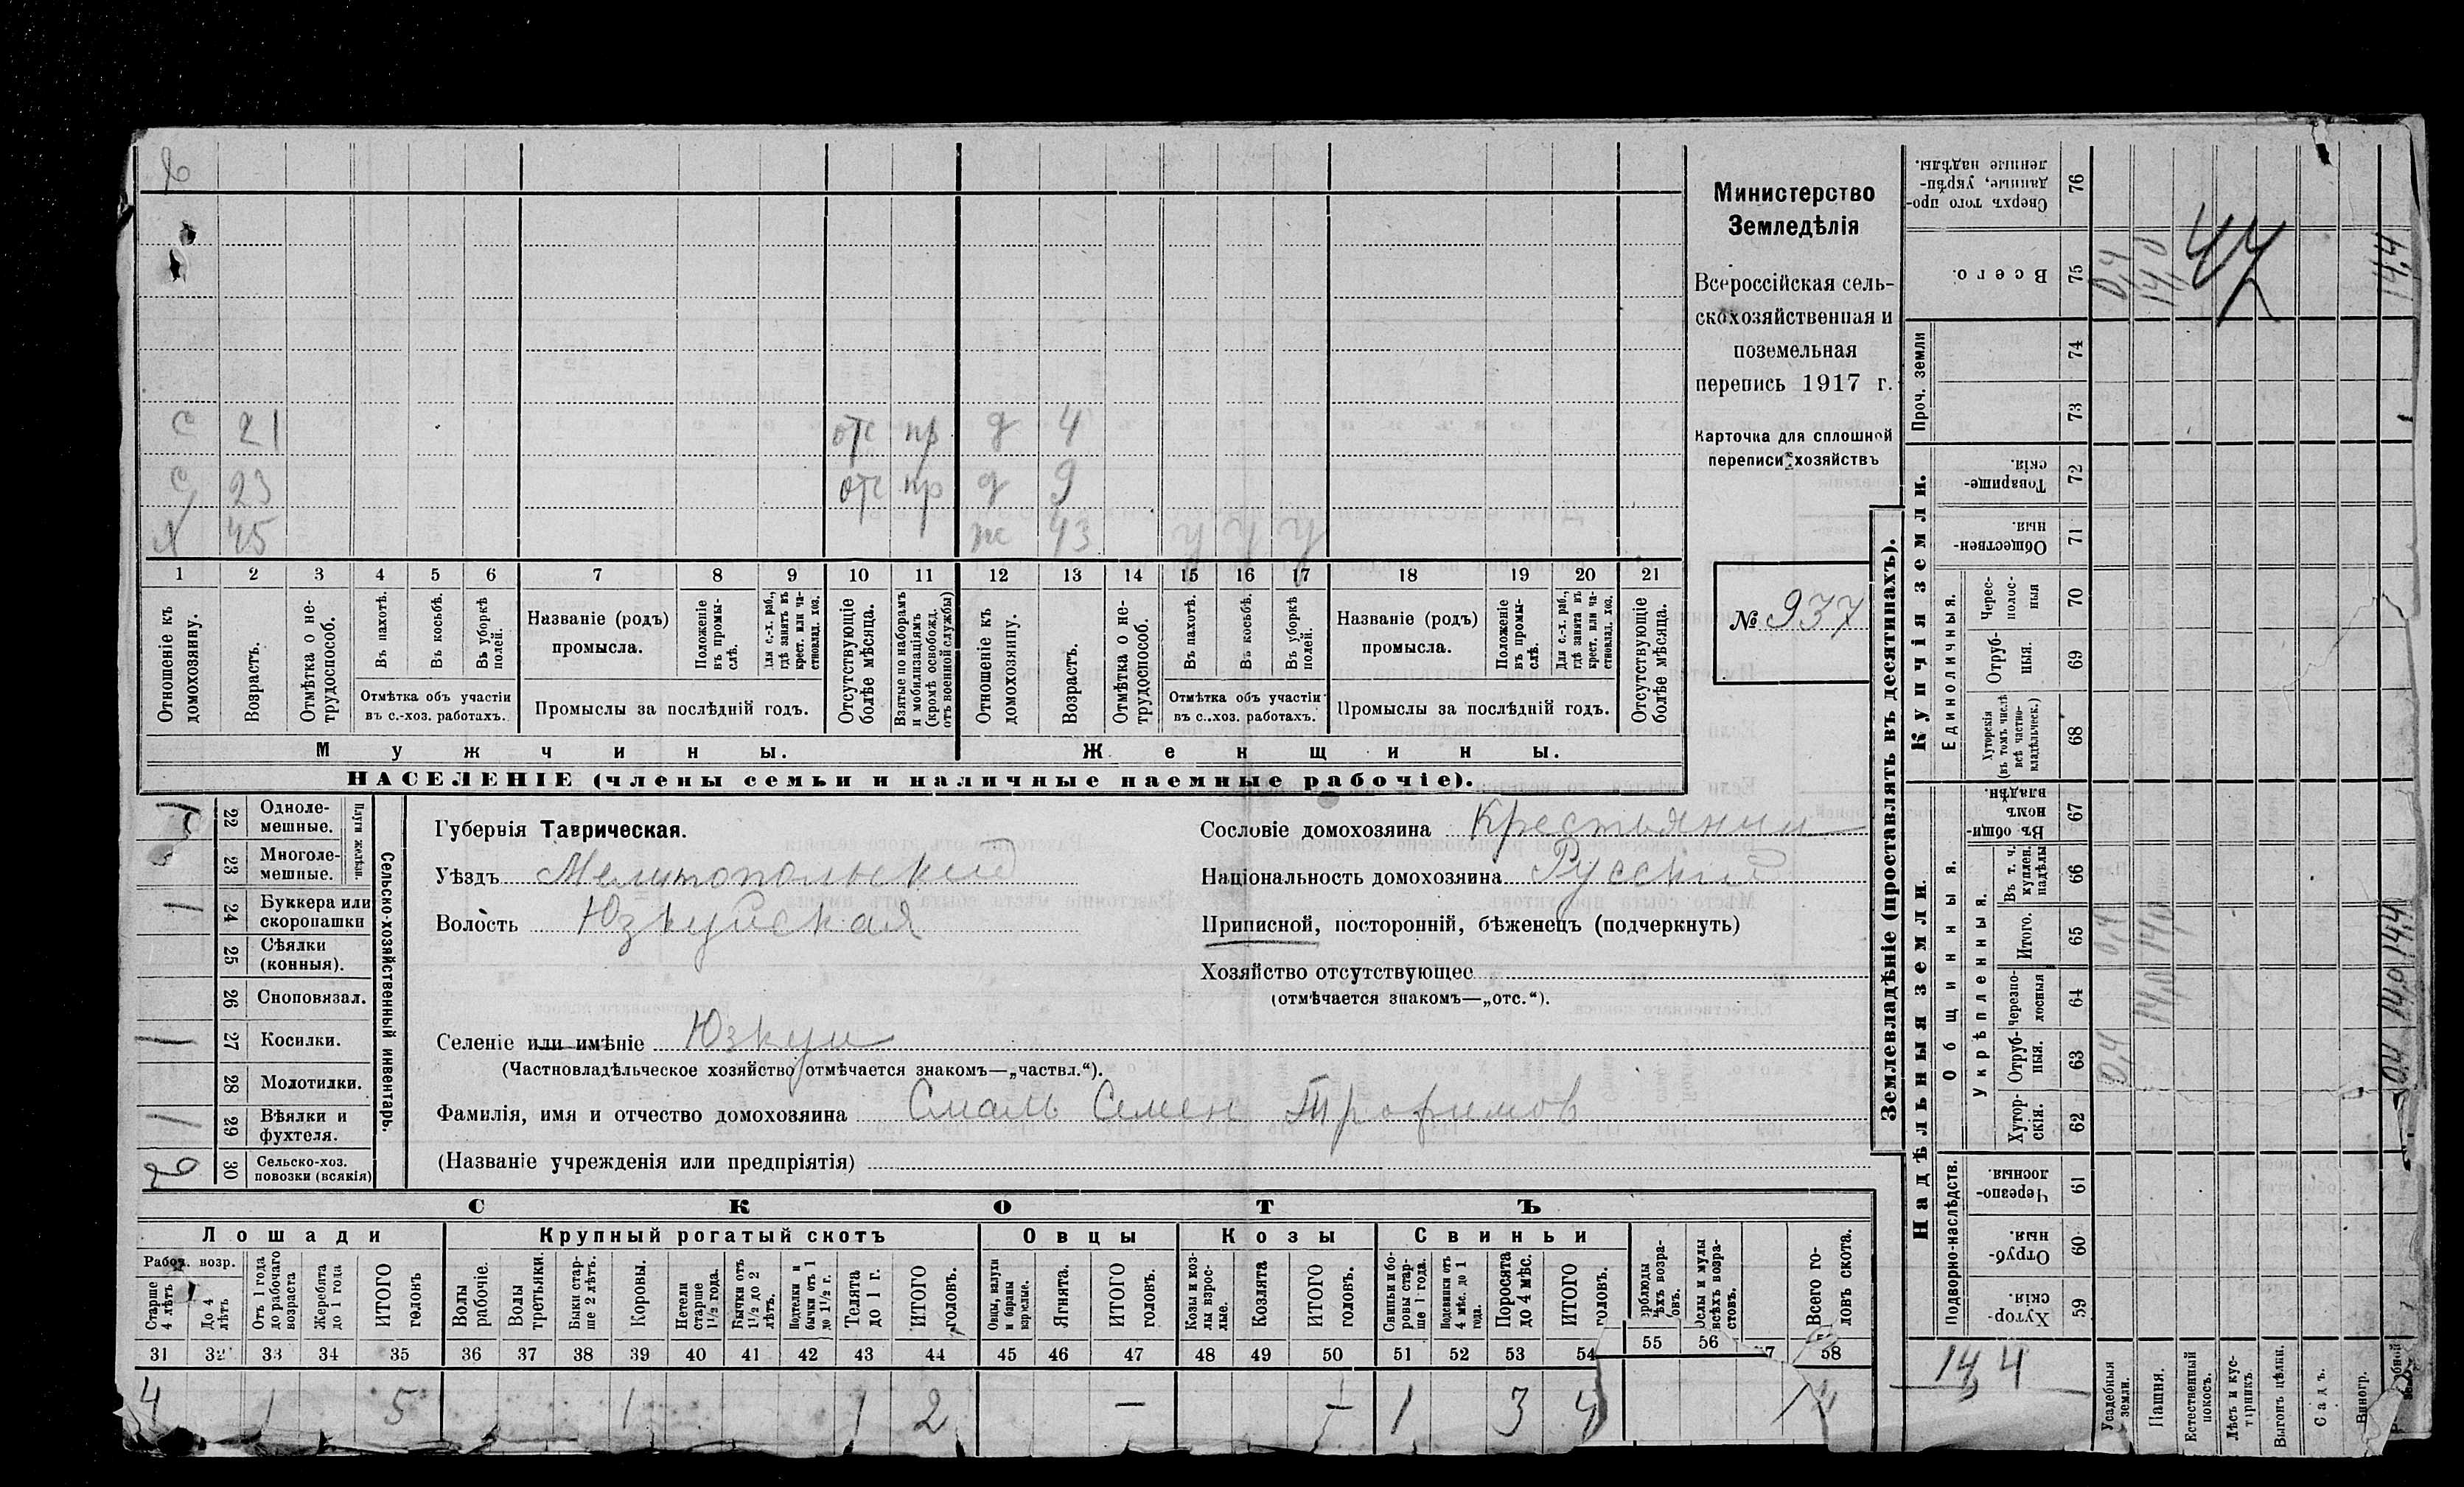 с 21 отс пр д 4
с 23 отс пр д 9
х 45 ж 43 у у у
1 2 3 4 5 6 7 8 9 10 11 12 13 14 15 16 17 18 19 20 21
Отношеніе къ домохозяину.
Возрастъ.
Отмѣтка о не-трудоспособ.
Въ пахотѣ.
Въ косьбѣ.
Въ уборкѣ полей.
Отмѣтка объ участіи
въ с.-хоз. работахъ.
Названіе (родъ)
промысла.
Положеніе въ промы-слѣ.
Для с.-х. раб., гдѣ занятъ въ крест. или ча-стновлад. хоз.
Промыслы за послѣдній годъ.
Отсутствующіе болѣе мѣсяца.
Взятые по наборамъ и мобилизаціямъ (кромѣ освобожд. отъ военной службы)
Отношеніе къ домохозяину.
Возрастъ.
Отмѣтка о не-трудоспособ.
Въ пахотѣ.
Въ косьбѣ.
Въ уборкѣ полей.
Отмѣтка объ участіи
въ с.-хоз. работахъ.
Названіе (родъ)
промысла.
Положеніе въ промы-слѣ.
Для с.-х. раб., гдѣ занята въ крест. или ча-стновлад. хоз.
Промыслы за послѣдній годъ.
Отсутствующіе болѣе мѣсяца.
Мужчины. Женщины.
НАСЕЛЕНІЕ (члены семьи и наличные наемные рабочіе).
Министерство
Земледѣлія
Всероссійская сель-
скохозяйственная и
поземельная
перепись 1917 г.
Карточка для сплошной
переписи хозяйствъ
№ 937
Сельско-хозяйственный инвентарь.
Плуги желѣзн.
22 Одноле-мешные.
23 Многоле-мешные.
1 24 Буккера или скоропашки
25 Сѣялки (конныя).
26 Сноповязал.
1 27 Косилки.
28 Молотилки.
1 29 Вѣялки и фухтеля.
2 30 Сельско-хоз. повозки (всякія)
Губернія Таврическая.
Уѣздъ Мелитопольскій
Волость Юзкуйская
Селеніе или имѣніе Юзкуи
(Частновладѣльческое хозяйство отмѣчается знакомъ—„частвл.“).
Фамилія, имя и отчество домохозяина Смаль Семен Трофимов
(Названіе учрежденія или предпріятія)
Сословіе домохозяина Крестьянин
Національность домохозяина Русскій
Приписной, посторонній, бѣженецъ (подчеркнуть)
Хозяйство отсутствующее
(отмѣчается знакомъ—„отс.“).
СКОТЪ
Лошади Крупный рогатый скотъ Овцы Козы Свиньи
Рабоч. возр.
Старше 4 лѣтъ
До 4 лѣтъ
Отъ 1 года до рабочаго возраста
Жеребята до 1 года
ИТОГО головъ
Волы рабочіе.
Волы третьяки.
Быки стар-ше 2 лѣтъ.
Коровы.
Нетели старше 1½ года.
Бычки отъ 1½ до 2 лѣтъ.
Подтелки и бычки отъ 1 до 1½ г.
Телята до 1 г.
ИТОГО головъ.
Овцы, валухи и бараны взрослые.
Ягнята.
ИТОГО головъ.
Козы и коз-лы взрос-лые.
Козлята
ИТОГО головъ.
Свиньи и бо-ровы стар-ше 1 года.
Подсвинки отъ 4 мѣс. до 1 года.
Поросята до 4 мѣс.
ИТОГО головъ.
Всего го-ловъ скота.
31 32 33 34 35 36 37 38 39 40 41 42 43 44 45 46 47 48 49 50 51 52 53 54 55 56 58
4 1 5 1 1 2 — — 1 3 4
Землевладѣніе (проставлять въ десятинахъ).
Купчія земли.
Надѣльныя земли.
Сверхъ того про-данные, укрѣп-ленные надѣлы. 76
Всего. 75 0,4 14,0 14,4
47
Проч. земли 74 73
Товарище-скія. 72
Обществен-ныя. 71
Единоличныя.
Черес-полос-ныя 70
Отруб-ныя. 69
Хуторскія (въ томъ числѣ всѣ частно-владѣльческ.) 68
Общинныя.
Укрѣпленныя.
Въ общи-номъ владѣн. 67
Въ т. ч. куплен. надѣлы 66
Итого. 65 0,4 14,0 14,4
Черезпо-лосныя 64 14,0 14,0
Отруб-ныя. 63 0,4 0,4
Хутор-скія. 62
Подворно-наслѣдств.
Черезпо-лосныя 61
Отруб-ныя. 60
Хутор-скія. 59
14,4
Усадебныя земли.
Пашня.
Естественный покосъ.
Лѣсъ и кус-тарникъ.
Выгонъ цѣлин.
Садъ.
Виногр.